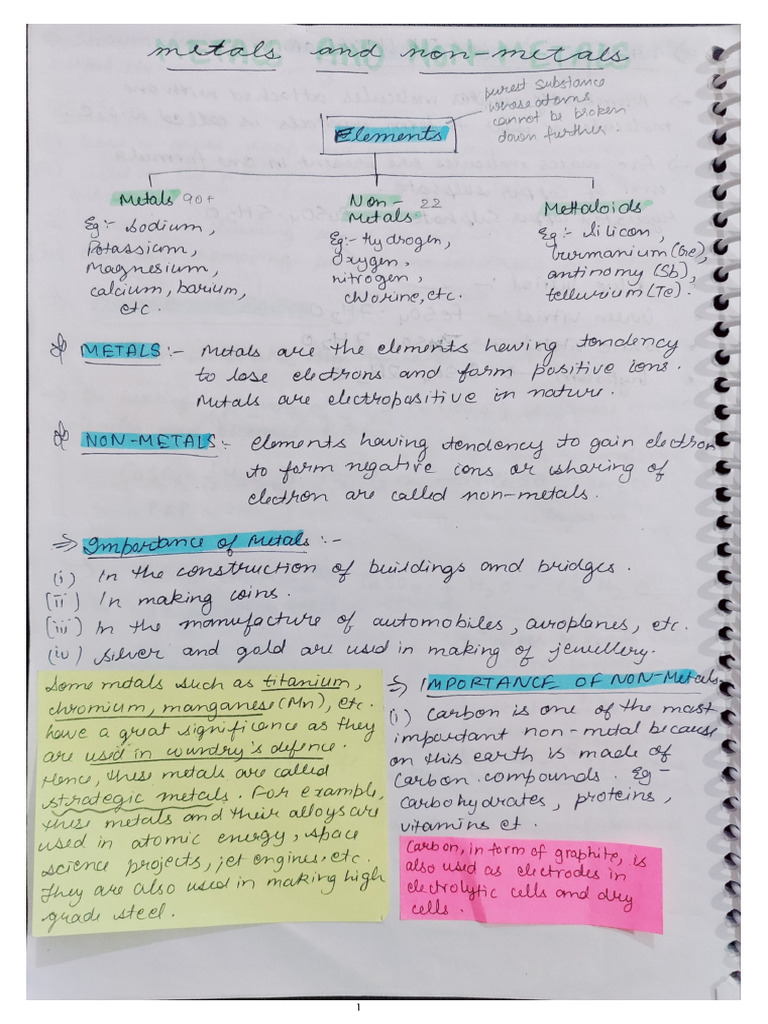 metals and non-metals
purest substance
whose atoms
cannot be broken
down further.
Elements
Metals 90+
Eg:- Sodium,
Potassium,
Magnesium,
calcium, barium,
etc.
Non- 22
Metals
Eg:- Hydrogen,
Oxygen,
nitrogen,
chlorine, etc.
Mettaloids
Eg:- Silicon,
Gurmanium (Ge),
antinomy (Sb),
tellurium (Te).
METALS :- Metals are the elements having tendency
to lose electrons and form positive ions.
Metals are electropositive in nature.
NON-METALS :- elements having tendency to gain electron
to form negative ions or sharing of
electron are called non-metals.
⇒ Importance of Metals :-
(i) In the construction of buildings and bridges.
(ii) In making coins.
(iii) In the manufacture of automobiles, aeroplanes, etc.
(iv) Silver and gold are used in making of jewellery.
Some metals such as titanium,
chromium, manganese (Mn), etc.
have a great significance as they
are used in country's defence.
Hence, these metals are called
strategic metals. For example,
these metals and their alloys are
used in atomic energy, space
science projects, jet engines, etc.
They are also used in making high
grade steel.
⇒ IMPORTANCE OF NON-Metals
(i) Carbon is one of the most
important non-metal because
on this earth is made of
Carbon compounds. Eg -
Carbohydrates, proteins,
vitamins et.
Carbon, in form of graphite, is
also used as electrodes in
electrolytic cells and dry
cells.
1